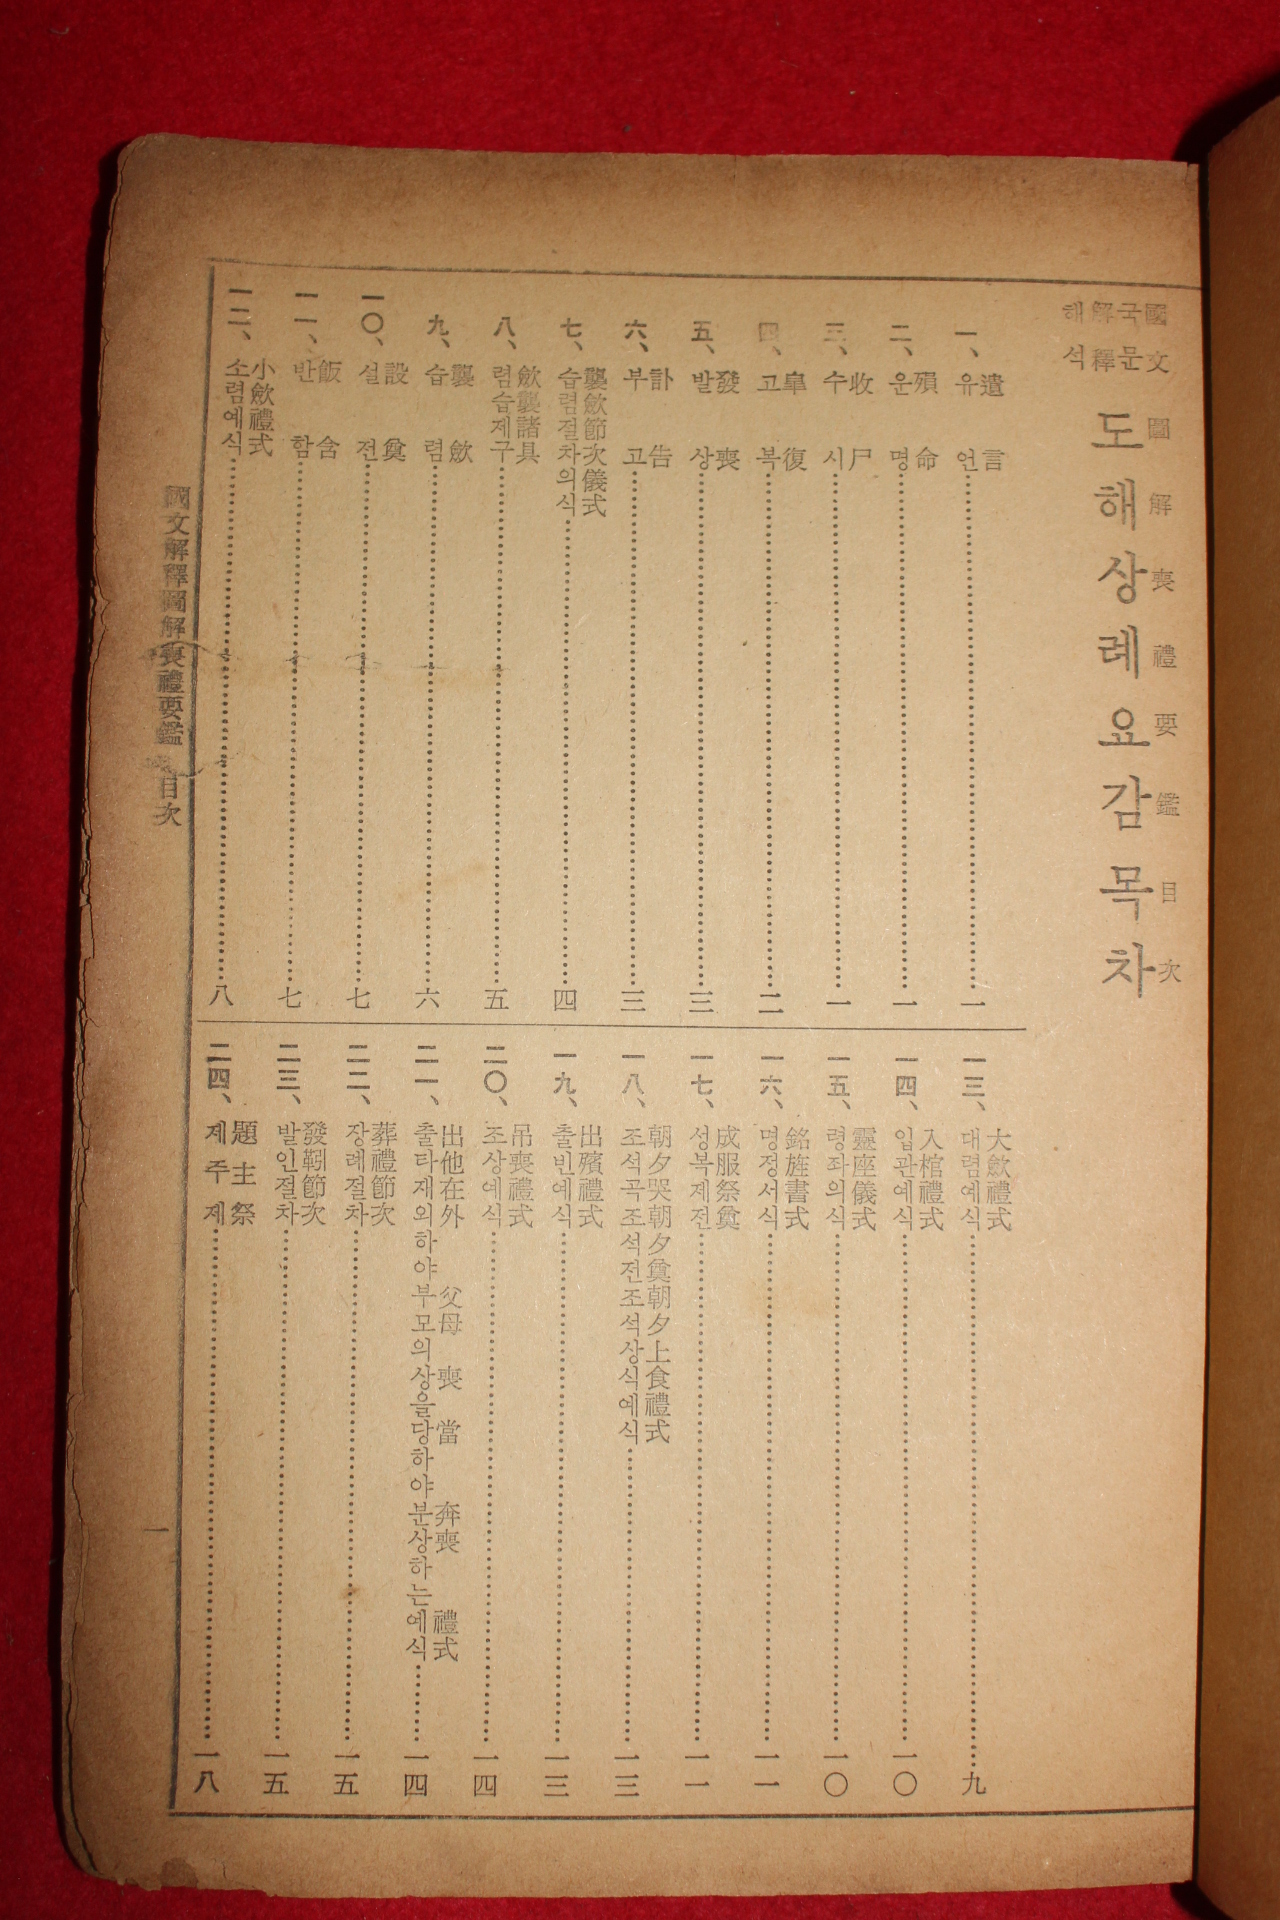 國文 국문 解釋 해석
圖解喪禮要鑑目次
도해상례요감목차
一、遺言 유언 一
二、殞命 운명 一
三、收尸 수시 一
四、皐復 고복 二
五、發喪 발상 三
六、訃告 부고 三
七、襲斂節次儀式 습렴절차의식 四
八、斂襲諸具 렴습제구 五
九、襲斂 습렴 六
一〇、設奠 설전 七
一一、飯含 반함 七
一二、小斂禮式 소렴예식 八
一三、大斂禮式 대렴예식 九
一四、入棺禮式 입관예식 一〇
一五、靈座儀式 령좌의식 一〇
一六、銘旌書式 명정서식 一一
一七、成服祭奠 성복제전 一一
一八、朝夕哭朝夕奠朝夕上食禮式 조석곡조석전조석상식예식 一三
一九、出殯禮式 출빈예식 一三
二〇、吊喪禮式 조상예식 一四
二一、出他在外 父母 喪 當 奔喪 禮式 출타재외하야부모의상을당하야분상하는예식 一四
二二、葬禮節次 장례절차 一五
二三、發靷節次 발인절차 一五
二四、題主祭 제주제 一八
國文解釋圖解喪禮要鑑 目次
一